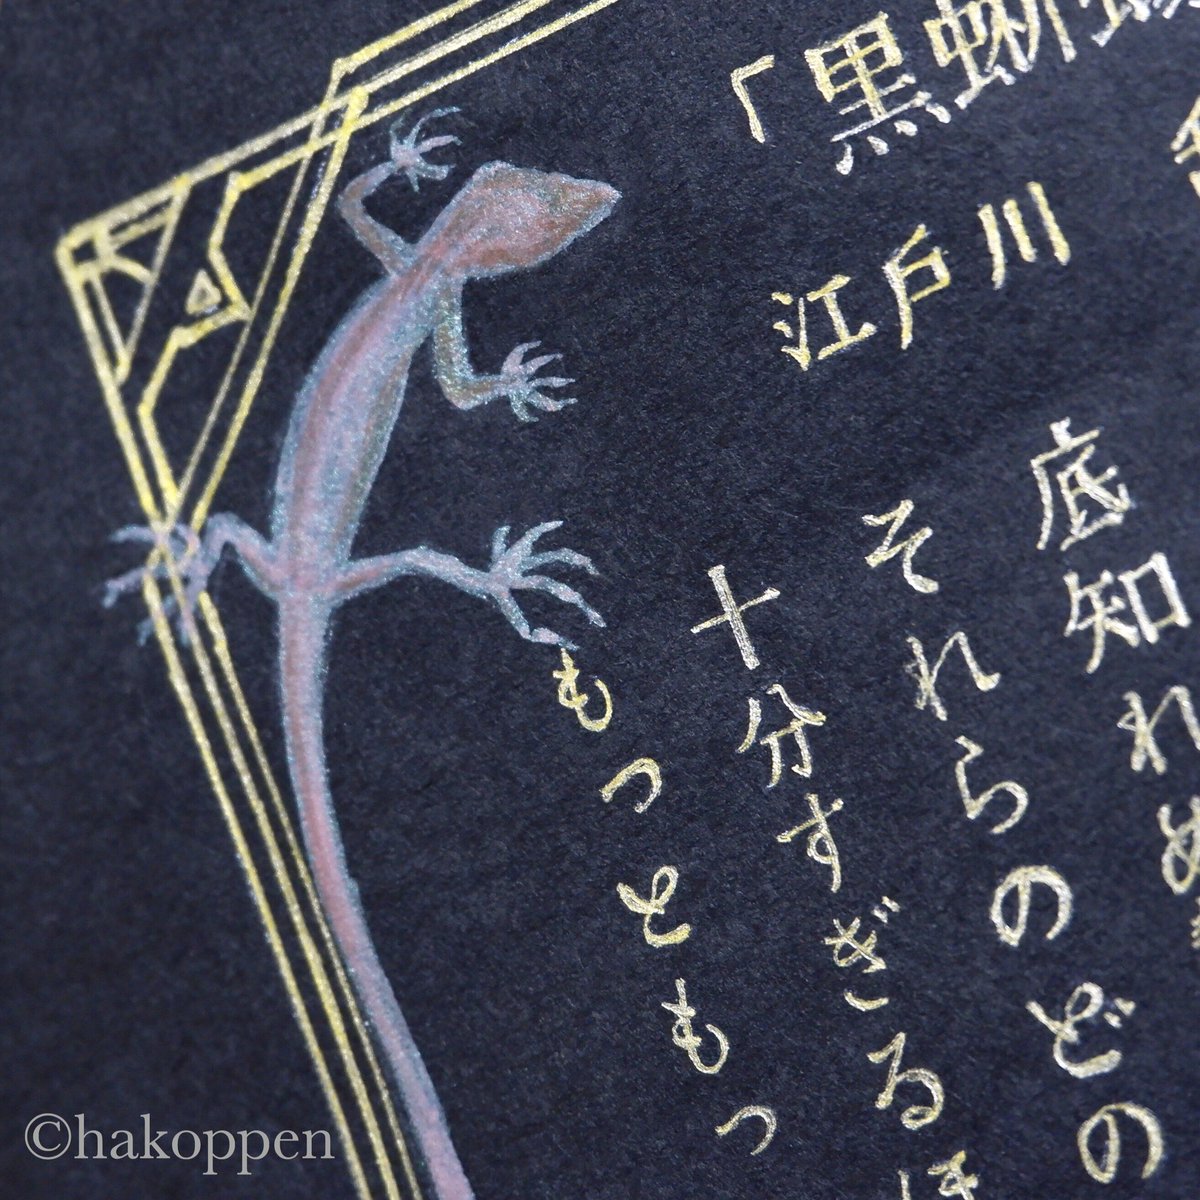 「黒蜥蜴
江戸川
底知れぬ
それらのどの
十分すぎるほ
もっともっ
©hakoppen